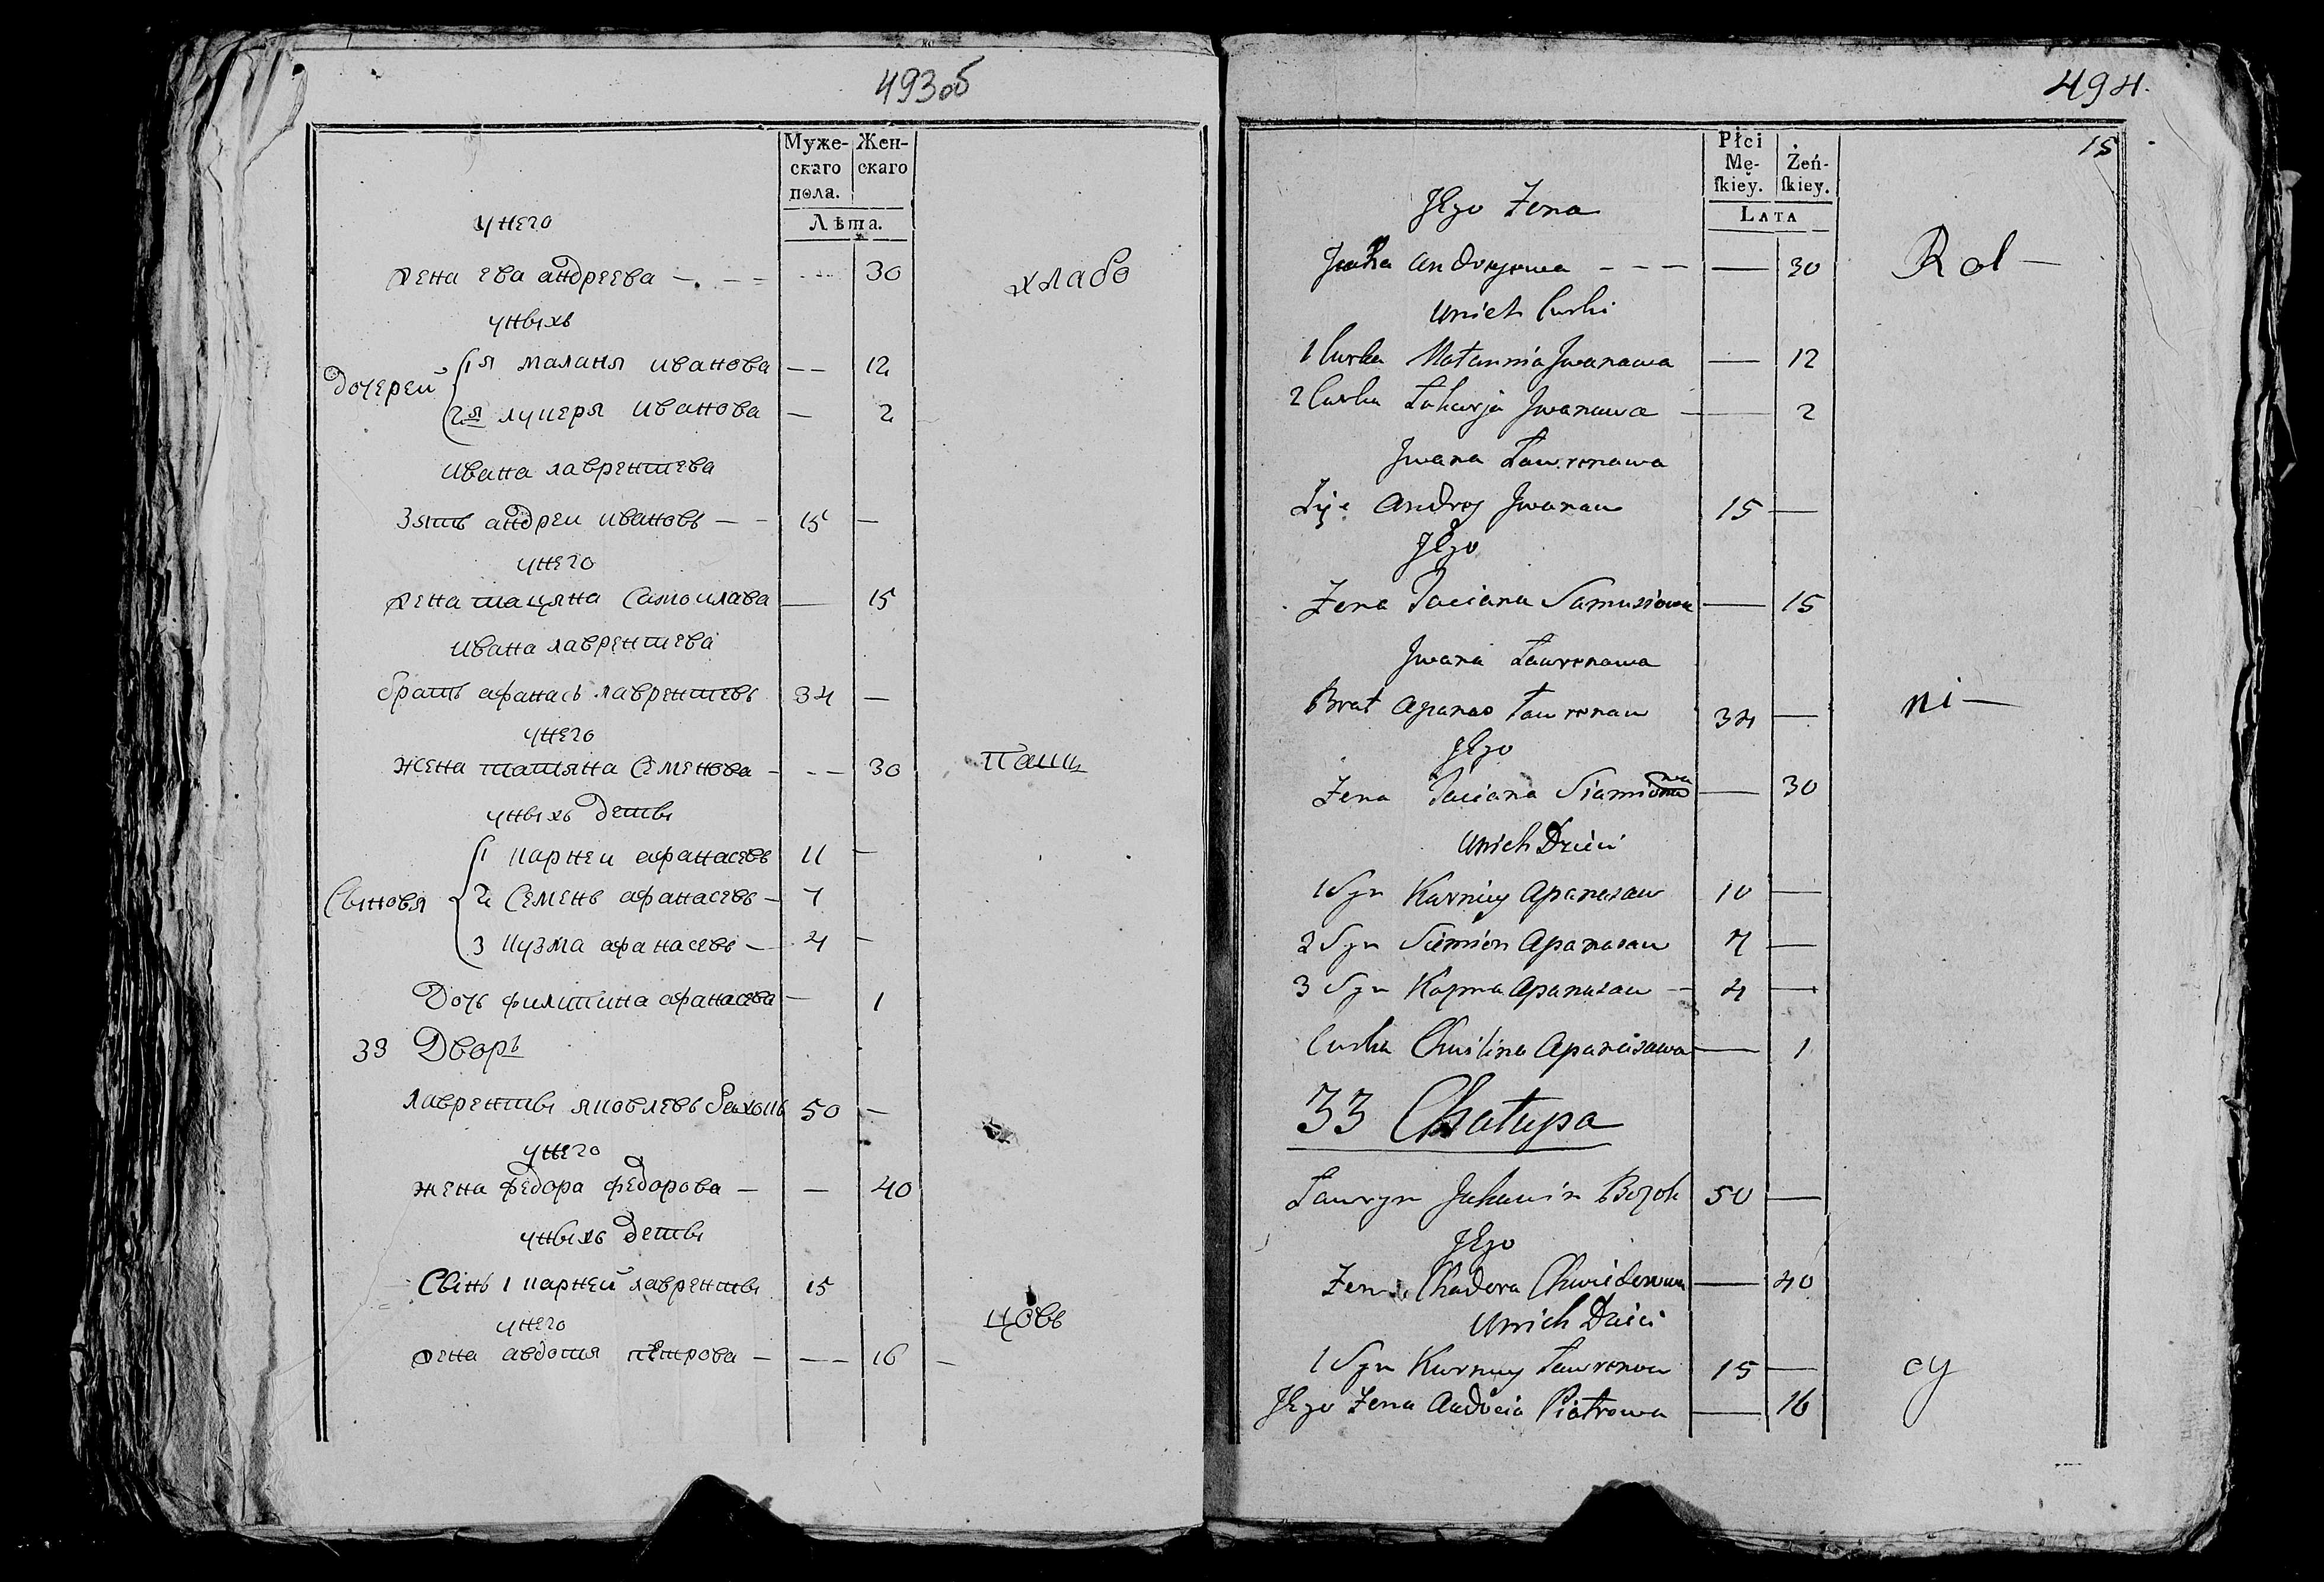 493об
Муже- Жен-
скаго скаго
пола.
Лѣта.
унего
жена ева андреева — 30
хлабо
унвıхъ
дочерей
1я маланя иванова — 12
2я луцеря иванова — 2
ивана лаврентева
Зять андреи ивановъ — 15 —
унего
жена тацяна Самоилава — 15
ивана лаврентева
братъ афанась лаврентевъ 34 —
унего
жена татяна Семенова — 30
пашц
унвıхъ детвı
Сынов'я
1 карнеи афанасевъ 11 —
2 Семенъ афанасевъ — 7
3 кузма афанасевъ — 4 —
Дочь филитина афанасева — 1
33 Дворъ
лаврентвı яковлевъ 50 —
унего
жена федора федорова — — 40
унвıхъ детвı
Свıнъ 1 карней лаврентвı 15
цовъ
унего
жена авдотя петрова — — 16 —
494.
15
Płci
Mę- Żeń-
ſkiey. ſkiey.
Lata
Jego Żona
Jeuka Andrejowa — — 30
Rol —
Unich Curki
1 Curka Małannia Jwanawa — 12
2 Curka Łukarja Jwanawa — 2
Jwana Ławrenawa
Zyć Andrej Jwanau 15 —
Jego
Żona Taciana Samusiowa — 15
Jwana Ławrenawa
Brat Apanas Ławrenau 34 —
ni —
Jego
Żona Taciana Siamionowa — 30
Unich Dzieci
1 Syn Karniey Apanasau 10 —
2 Syn Siemion Apanasau 7 —
3 Syn Kuzma Apanasau — 4 —
Curka Chwilina Apanasawa — 1
33 Chałupa
Ławryn Jakawin Bozok 50 —
Jego
Żona Chadora Chwiedorowa — 40
Unich Dzieci
1 Syn Karniey Ławrenou 15 —
cy
Jego Żona Audocia Piotrowa — 16